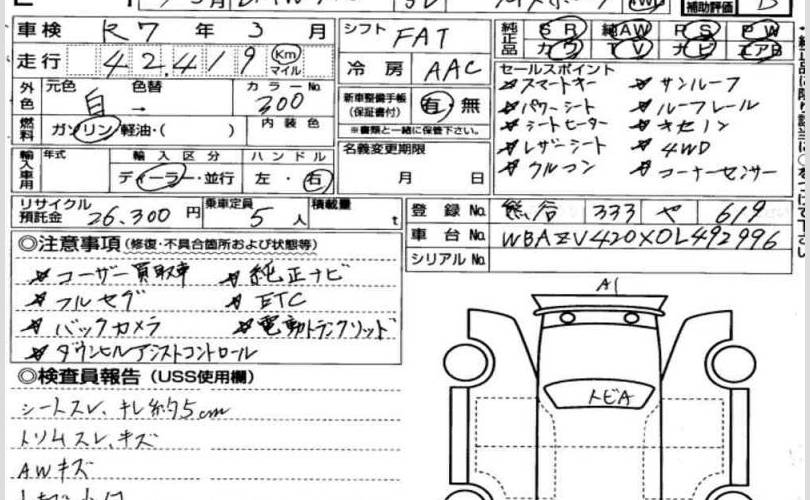 補助評価
車検 R7 年 3 月 シフト FAT 純正品 SR 純AW PS PW
カワ TV ナビ エアB
走行 42,419 Km マイル 冷房 AAC
セールスポイント
外色 元色 白 色替 → カラーNo. 300
☆スマートキー ☆サンルーフ
新車整備手帳(保証書付) 有・無
※書類と一緒に保管下さい。
☆パワーシート ☆ルーフレール
燃料 ガソリン 軽油・( ) 内装色
☆シートヒーター ☆キセノン
名義変更期限
月 日
☆レザーシート ☆4WD
輸入車用 年式 輸入区分 ハンドル
ディーラー・並行 左・右
☆クルコン ☆コーナーセンサー
リサイクル預託金 26,300円 乗車定員 5人 積載量 t
登録No. 熊谷 333 や 619
車台No. WBAZV420X0L492996
シリアルNo.
◎注意事項(修復・不具合個所および状態等)
☆ユーザー買取車 ☆純正ナビ
☆フルセグ ☆ETC
☆バックカメラ ☆電動トランクリッド
☆ダウンヒルアシストコントロール
A1
トビA
◎検査員報告(USS使用欄)
シートスレ、キレ約5cm
トリムスレ、キズ
AWキズ